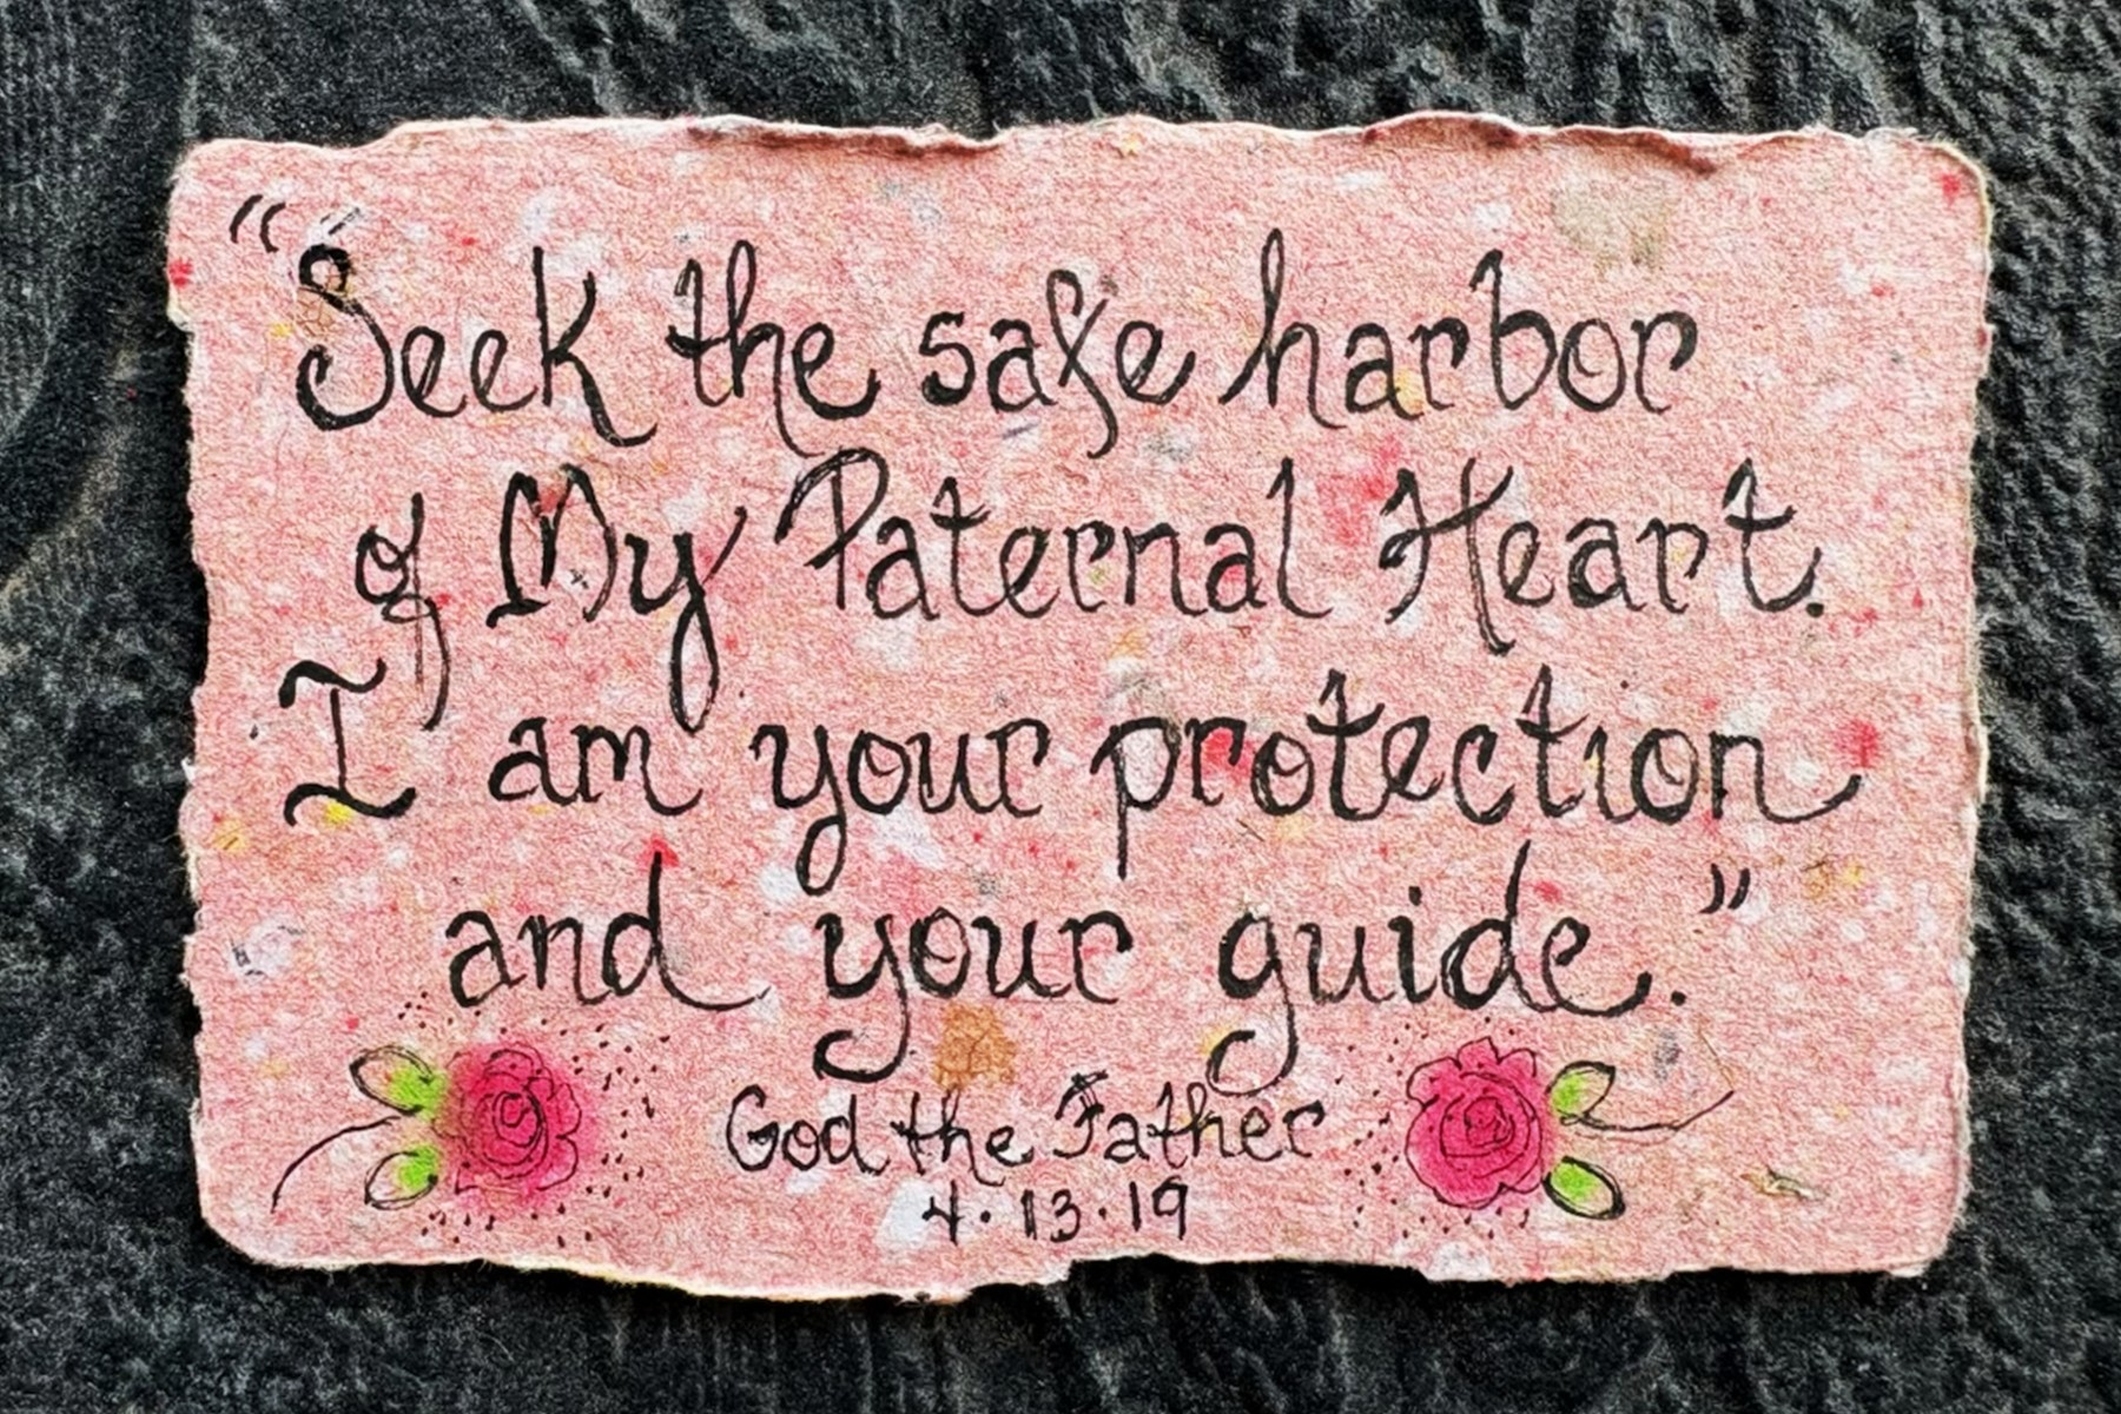 “Seek the safe harbor
of My Paternal Heart.
I am your protection
and your guide.”
God the Father
4.13.19